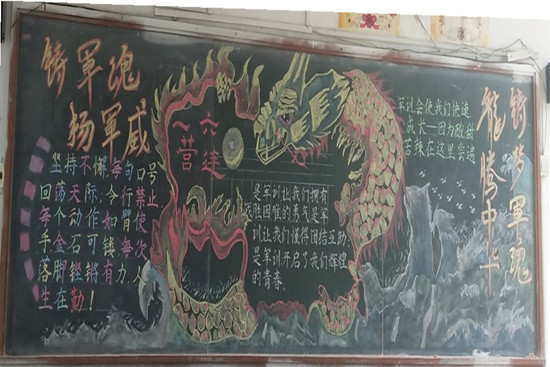 铸軍魂
扬軍威
坚持不懈每句口号
回荡天际.令行禁止
每个动作如臂使
手金石可镂每次
落脚铿锵有力.人
生在勤!
一营
六连
是军训让我们拥有
战胜困难的勇气是军
训让我们懂得团结互助
是军训开启了我们辉煌
的青春
军训会使我们快速
成长—因为酸甜
苦辣在这里尝遍
铸梦軍魂
龍腾中华